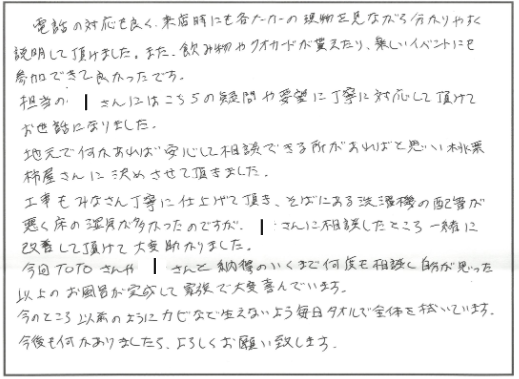 電話の対応も良く、来店時にも各メーカーの現物を見ながら分かりやすく
説明して頂けました。また、飲み物やクオカードが貰えたり、楽しいイベントにも
参加できて良かったです。
担当の さんにはこちらの疑問や要望に丁寧に対応して頂けて
お世話になりました。
地元で何かあれば安心して相談できる所があればと思い桃栗
柿屋さんに決めさせて頂きました。
工事もみなさん丁寧に仕上げて頂き、そばにある洗濯機の配管が
悪く床の湿気が多かったのですが、 さんに相談したところ一緒に
改善して頂けて大変助かりました。
今回TOTOさんや さんと納得のいくまで何度も相談し自分が思った
以上のお風呂が完成して家族で大変喜んでいます。
今のところ以前のようにカビなど生えないよう毎日タオルで全体を拭いています。
今後も何かありましたら、よろしくお願い致します。